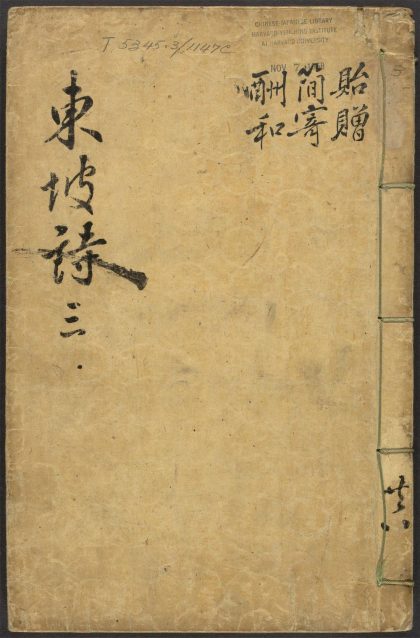 CHINESE-JAPANESE LIBRARY
HARVARD-YENCHING INSTITUTE
AT HARVARD UNIVERSITY
T 5345.3/1147C
貽贈
簡寄
酬和
東坡詩 三